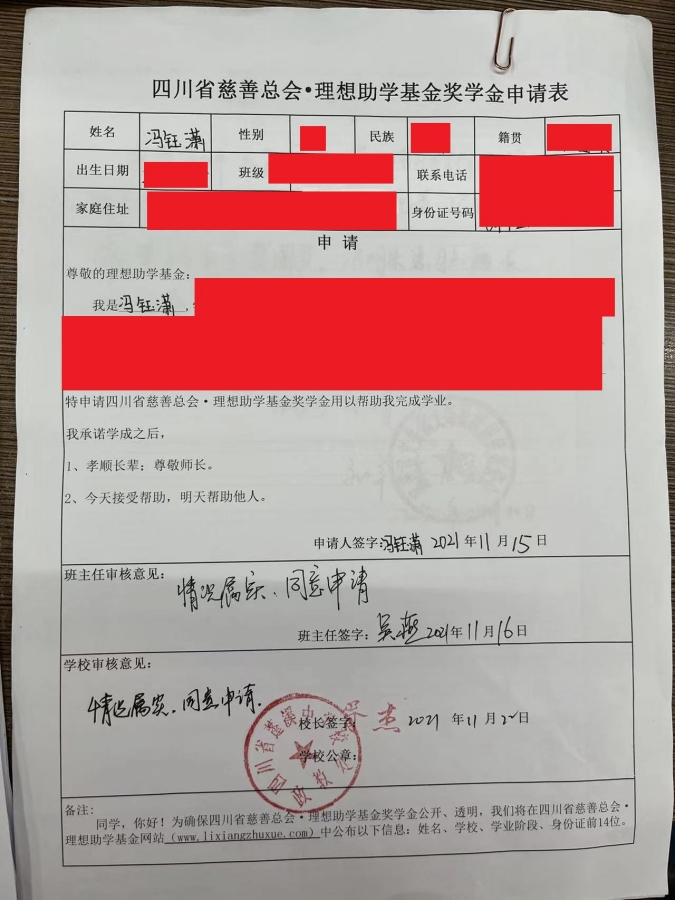 四川省慈善总会·理想助学基金奖学金申请表
姓名 冯钰潇 性别 民族 籍贯
出生日期 班级 联系电话
家庭住址 身份证号码
申 请
尊敬的理想助学基金：
我是冯钰潇，
特申请四川省慈善总会·理想助学基金奖学金用以帮助我完成学业。
我承诺学成之后，
1、孝顺长辈；尊敬师长。
2、今天接受帮助，明天帮助他人。
申请人签字：冯钰潇 2021年11月15日
班主任审核意见：
情况属实、同意申请
班主任签字：吴燕 2021年11月16日
学校审核意见：
情况属实、同意申请.
校长签字： 杰 2021年11月2日
学校公章：
四川省蓬溪中学校
政教处
备注：
同学，你好！为确保四川省慈善总会·理想助学基金奖学金公开、透明，我们将在四川省慈善总会·
理想助学基金网站（www.lixiangzhuxue.com）中公布以下信息：姓名、学校、学业阶段、身份证前14位。